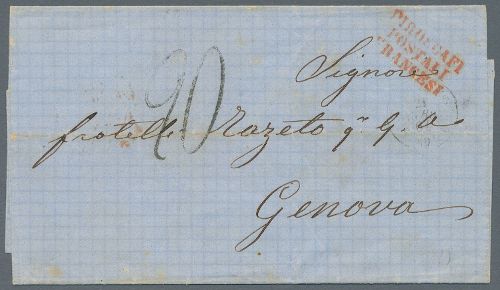 PIROSCAFI
POSTALI
FRANCESI
20
Signori
fratelli Razeto q. G. B.
Genova